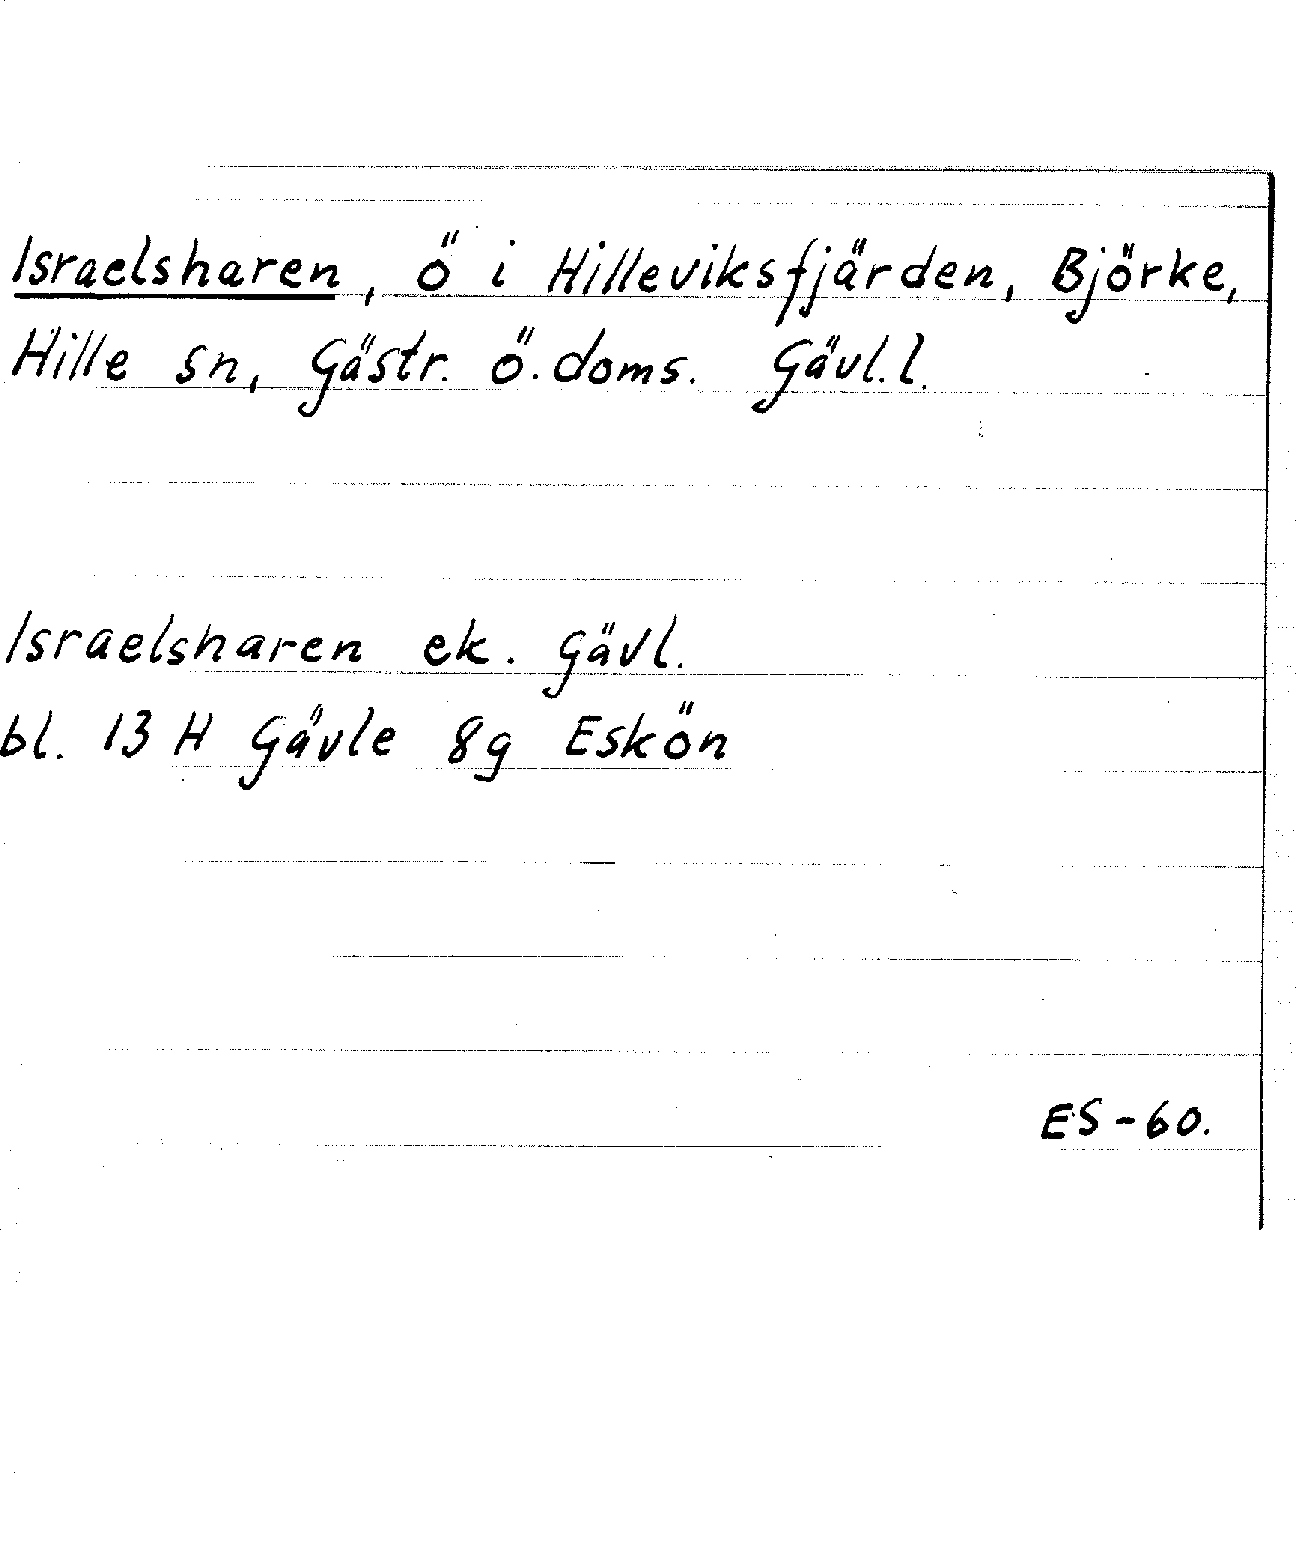 Israelsharen, ö i Hilleviksfjärden, Björke,
Hille sn, Gästr. ö. doms. Gävl. l.
Israelsharen ek. Gävl.
bl. 13 H Gävle 8g Eskön
ES-60.